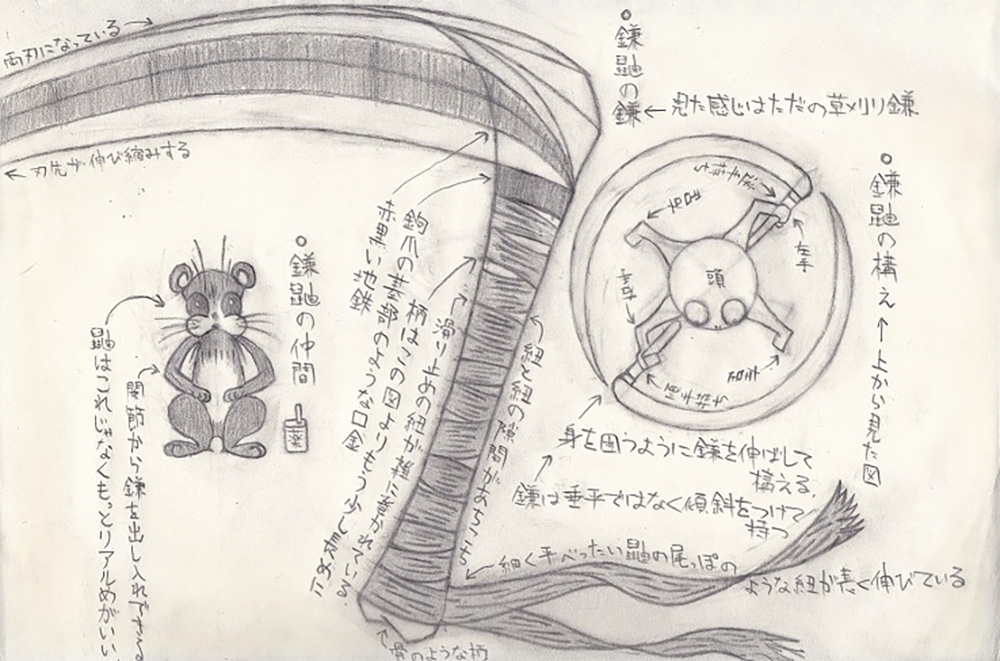 両刃になっている→
←刃先が伸び縮みする
●鎌鼬の鎌←見た感じはただの草メリリ鎌
●鎌鼬の構え←上から見た図
左手
頭
身を囲うように鎌を伸ばして
構える。
鎌は垂平ではなく傾斜をつけて
持つ
紐と紐の隙間があちこち
滑り止めの紐が雑に巻かれている。
柄はこの図よりもう少し長め!!
鉤爪の基部のような口金
赤黒い地鉄
●鎌鼬の仲間
薬
関節から鎌を出し入れできる
鼬はこれじゃなくもっとリアルめがいい
←細く平べったい鼬の尾っぽの
ような紐が長く伸びている
骨のような柄